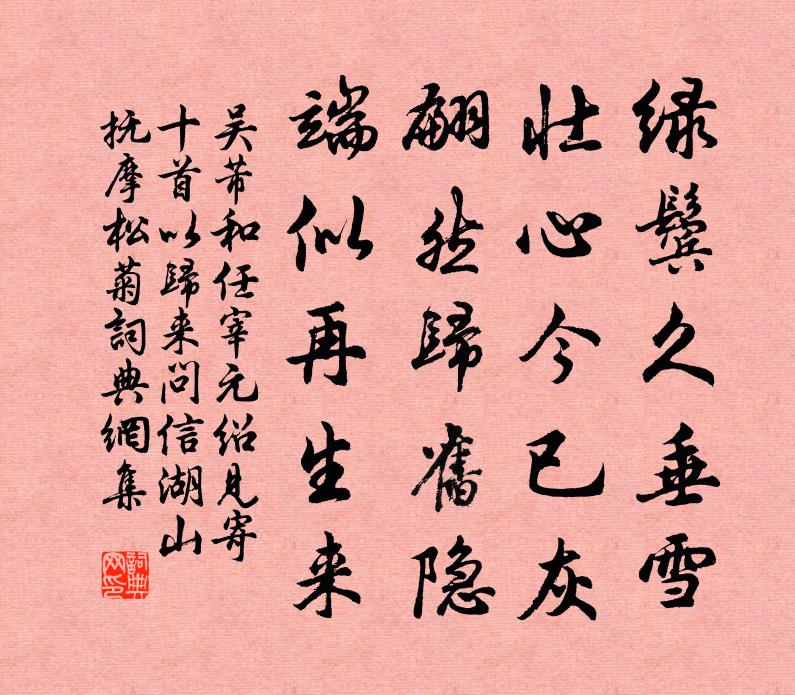 绿鬓久垂雪
壮心今已灰
翩然歸舊隐
端似再生来
吴芾和任宰元绍見寄
十首以歸来问信湖山
抚摩松菊詞典網集
詞典网印